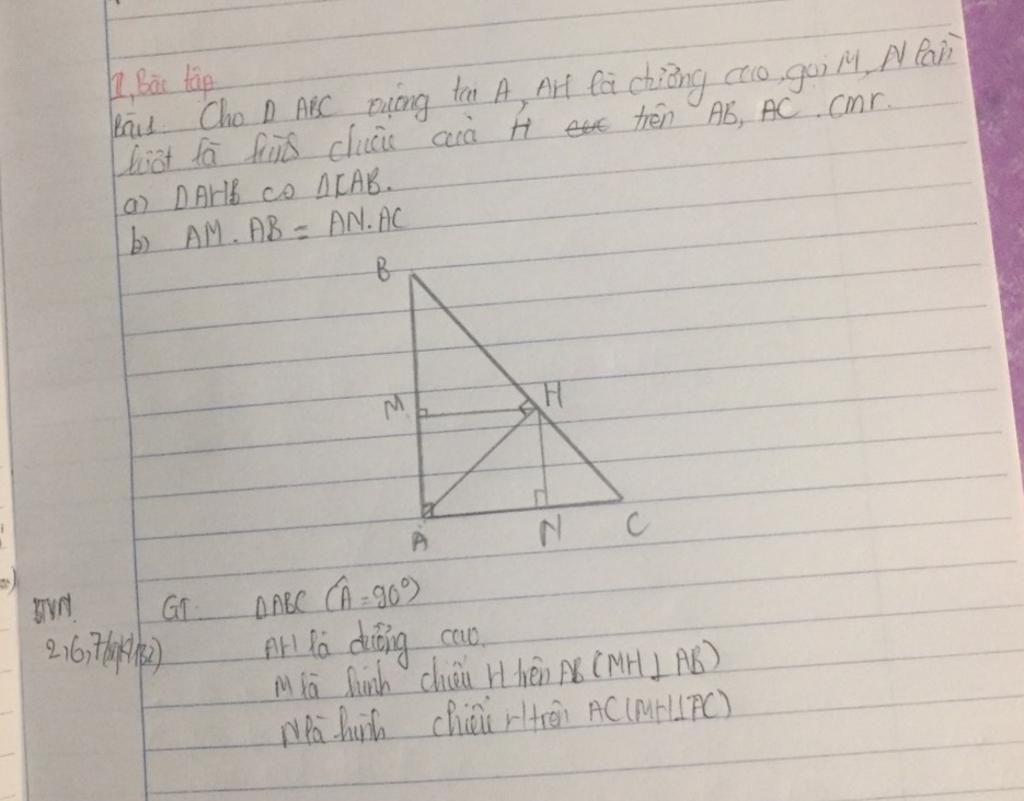 I, Bài tập
Bài 1. Cho Δ ABC vuông tại A, AH là đường cao, gọi M, N lần
lượt là hình chiếu của H trên AB, AC. cmr.
a) ΔAHB ᔕ ΔCAB.
b) AM. AB = AN. AC
B
M
H
A
N
C
BTVN.
GT. ΔABC (Â = 90°)
2,6,7
AH là đường cao.
M là hình chiếu H trên AB (MH⊥AB)
N là hình chiếu H trên AC (MH⊥AC)